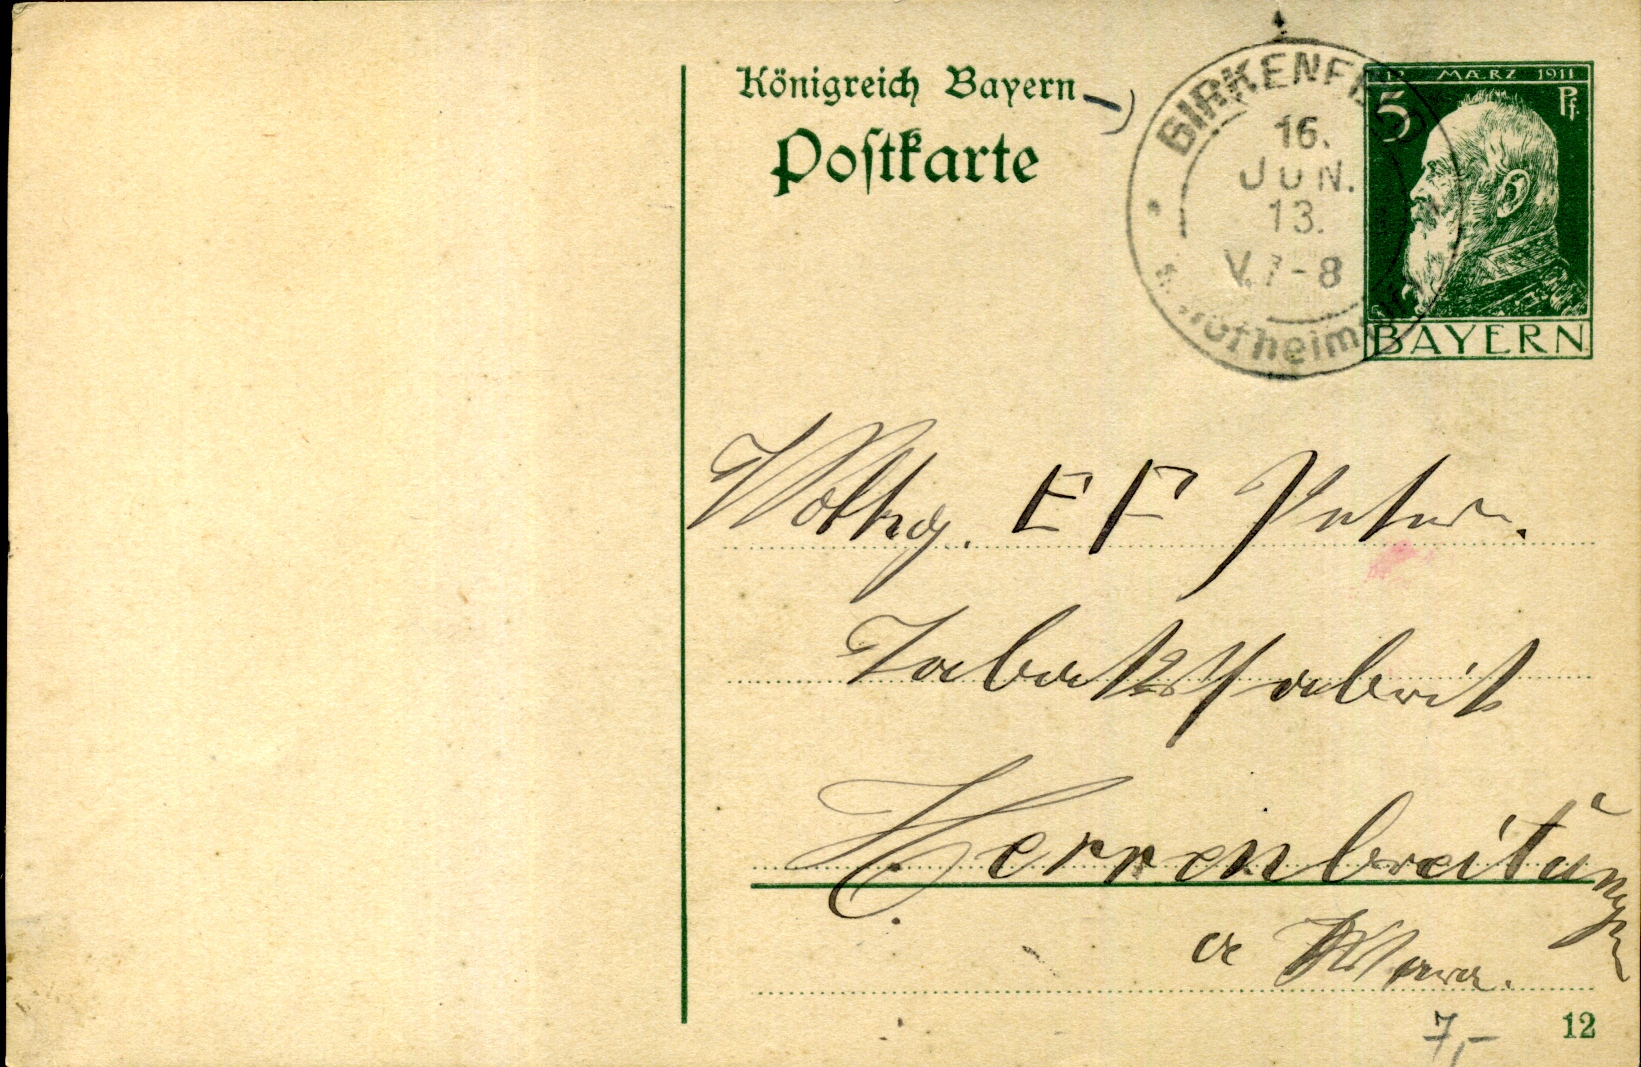 Königreich Bayern
Postkarte
BIRKENFELD
16.
JUN.
13.
V. 7-8
Hofheim
12 MÄRZ 1911
5 Pf.
BAYERN
E F Peter.
Tabakfabrik
Herrenbreitungen
a Werra.
7,-
12